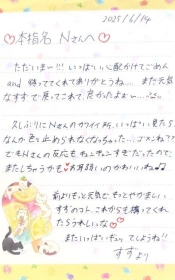 2025/6/14
本指名 Nさんへ
ただいまー!!! いっぱい心配かけてごめん
and 待っててくれてありがとうね... また元気な
すずで戻ってこれて、良かったよぉー...
久しぶりにNさんのカワイイ所、いっぱい見たら
なんか色々止められなくなっちゃった... ゴメンね??
でもNさんの反応もすごかったので、
またしちゃうかも お耳弱いのかわいいね
前よりもっと元気で、もっとやかましい
すずのコト、これからも構ってくれ
たらうれしいな
またいっぱいギュッてしようね!!
すずより